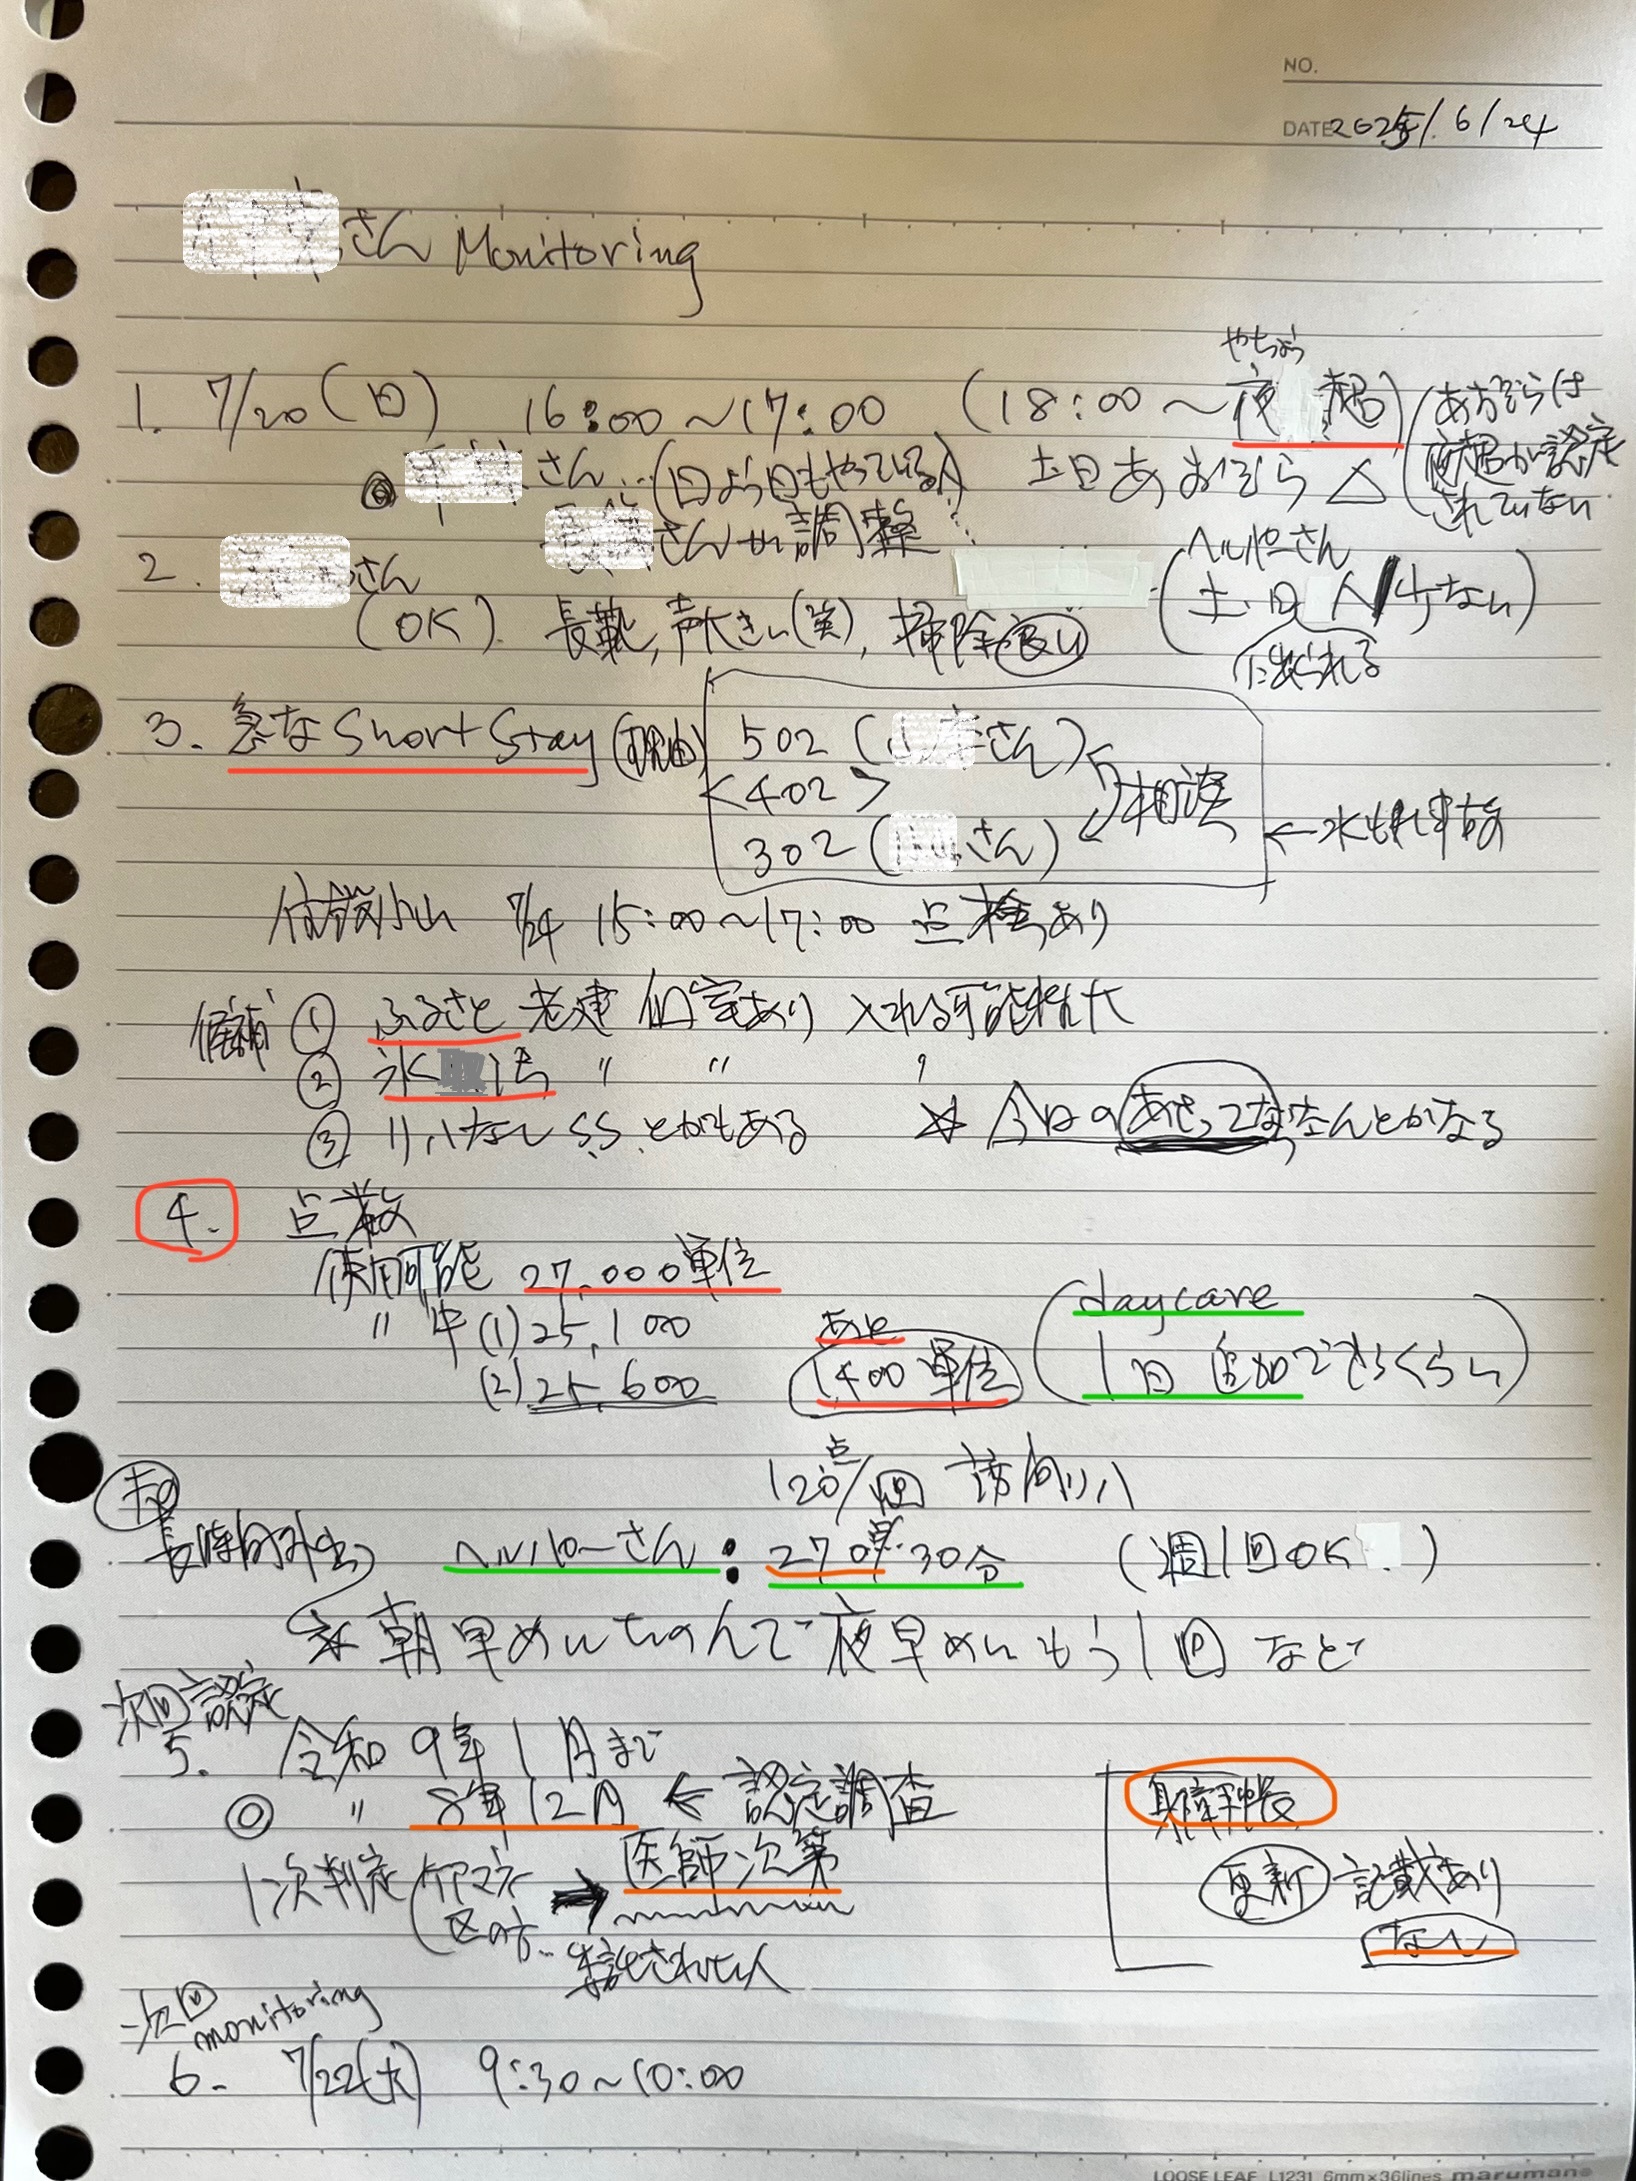 NO.
DATE 2025/6/24
さん Monitoring
1. 7/20(日) 16:00〜17:00 (18:00〜夜 超)
やちょう
(あおぞらは
夜超が認定
されていない
さん…(日よう日もやっている人) 土日 あおぞら △
さんが調整…
2. さん
(OK). 長靴, 声大きい(笑), 掃除
ヘルパーさん
(土・日 人少ない)
3. 急な Short Stay (理由)
502 ( さん)
<402>
302 ( さん)
相談
←水もれ事故
7/24 15:00〜17:00 点検あり
候補 ① ふるさと 老健 個室あり 入れる可能性大
② 氷 〃 〃 〃
③ リハなし S.S. とかもある
☆ 今日の あせってな なんとかなる
4. 点数
使用可能 27,000単位
〃 中 (1) 25,100
(2) 25,600
あと
1,400単位
(daycare
1日 追加できるくらい)
120点/回 訪問リハ
長時間外出
ヘルパーさん: 270単・30分 (週1回OK )
☆ 朝早めにたのんで 夜早めにもう1回 など
次回認定
5. 令和 9年 1月まで
◎ 〃 8年12月 ← 認定調査
1次判定 (ケアマネ
区の方… ➡ 医師次第
委託された人
身障手帳
更新 記載あり
なし
次回
monitoring
6. 7/22(火) 9:30〜10:00
LOOSE LEAF L1231 6mm×36lines maruman